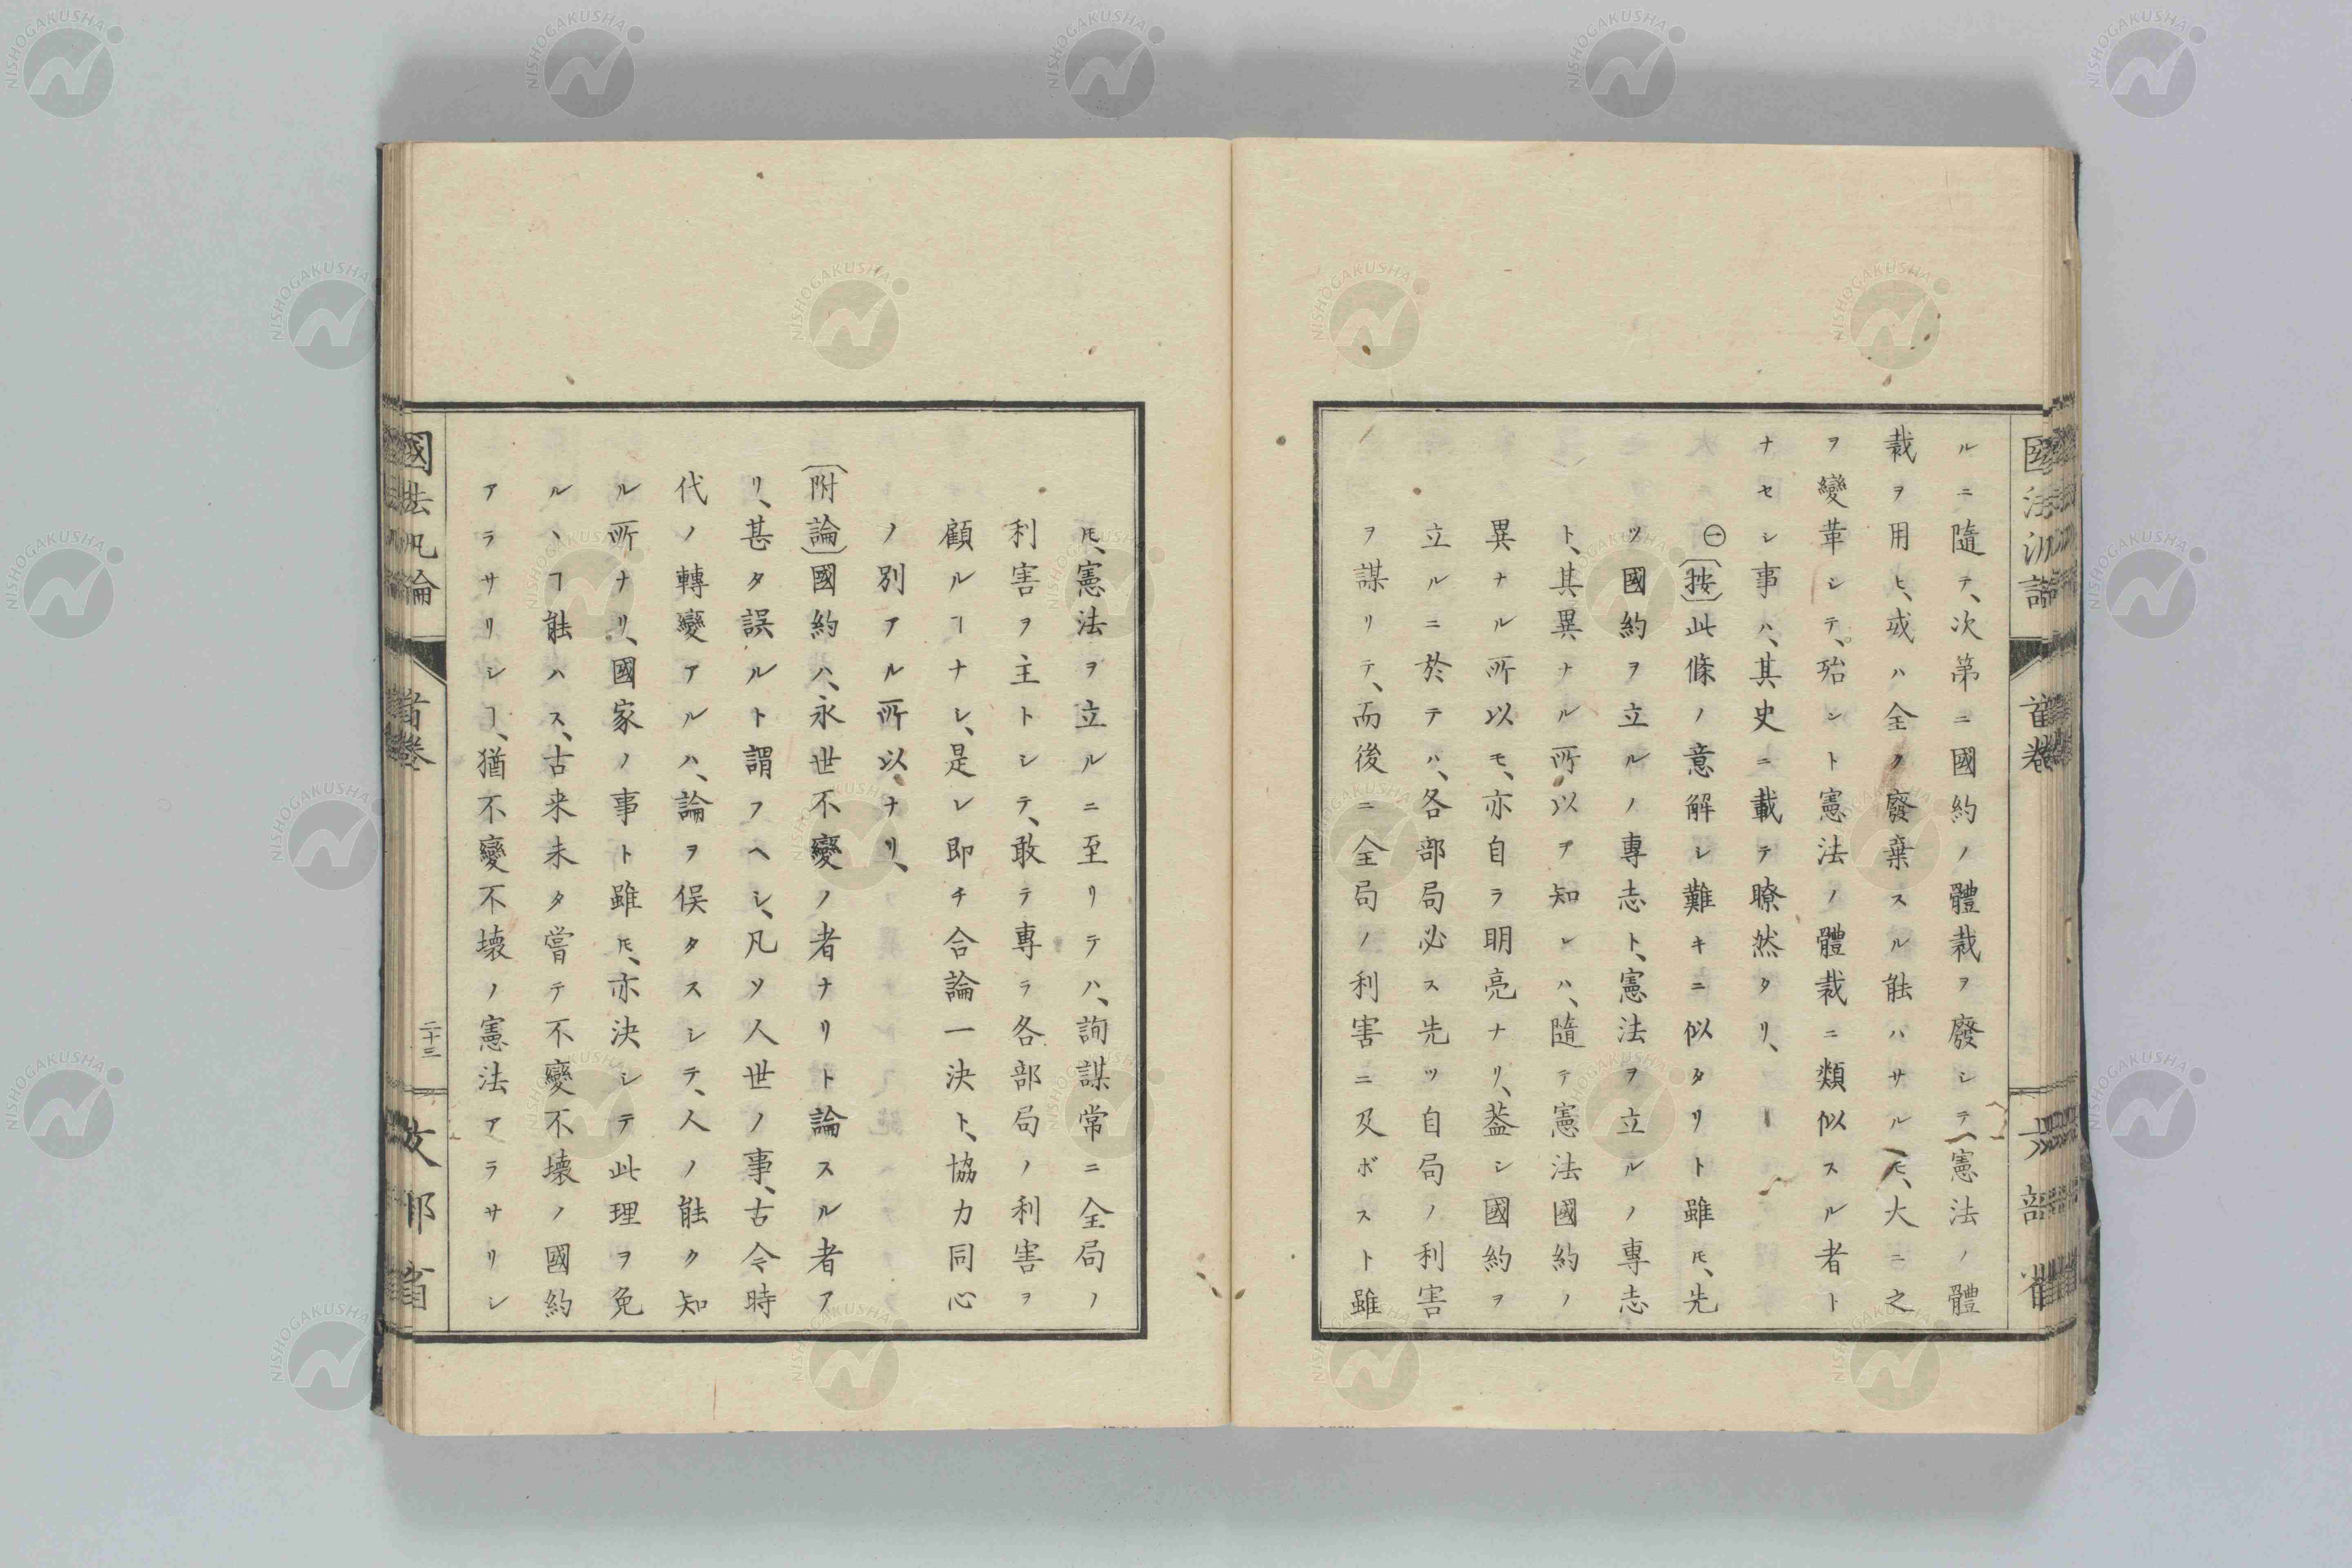 ルニ隨テ、次第ニ國約ノ體裁ヲ廢シテ(憲法ノ體
裁ヲ用ヒ、或ハ全ク廢棄スル能ハサルㇳモ、大ニ之
ヲ變革シテ、殆ント憲法ノ體裁ニ類似スル者ト
ナセシ事ハ、其史ニ載テ瞭然タリ、
㊀(按)此條ノ意解シ難キニ似タリト雖𪜈、先
ツ國約ヲ立ルノ專志ト、憲法ヲ立ルノ專志
ト、其異ナル所以ヲ知レハ、隨テ憲法國約ノ
異ナル所以モ、亦自ラ明亮ナリ、蓋シ國約ヲ
立ルニ於テハ、各部局必ス先ツ自局ノ利害
ヲ謀リテ、而後ニ全局ノ利害ニ及ボスト雖
𪜈、憲法ヲ立ルニ至リテハ、詢謀常ニ全局ノ
利害ヲ主トシテ、敢テ專ラ各部局ノ利害ヲ
顧ルヿナシ、是レ即チ合論一決ト、協力同心
ノ別アル所以ナリ、
(附論)國約ハ、永世不變ノ者ナリト論スル者ア
リ、甚タ誤ルト謂フヘシ、凡ソ人世ノ事、古今時
代ノ轉變アルハ、論ヲ俟タスシテ、人ノ能ク知
ル所ナリ、國家ノ事ト雖𪜈、亦決シテ此理ヲ免
ルヽヿ能ハス、古来未タ嘗テ不變不壊ノ國約
アラサリシヿ、猶不變不壊ノ憲法アラサリシ
國法汎論 首卷 二十三 文部省